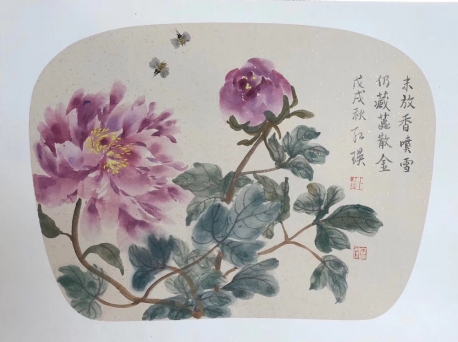 未放香喷雪
仍藏蕊散金
戊戌秋 红瑛